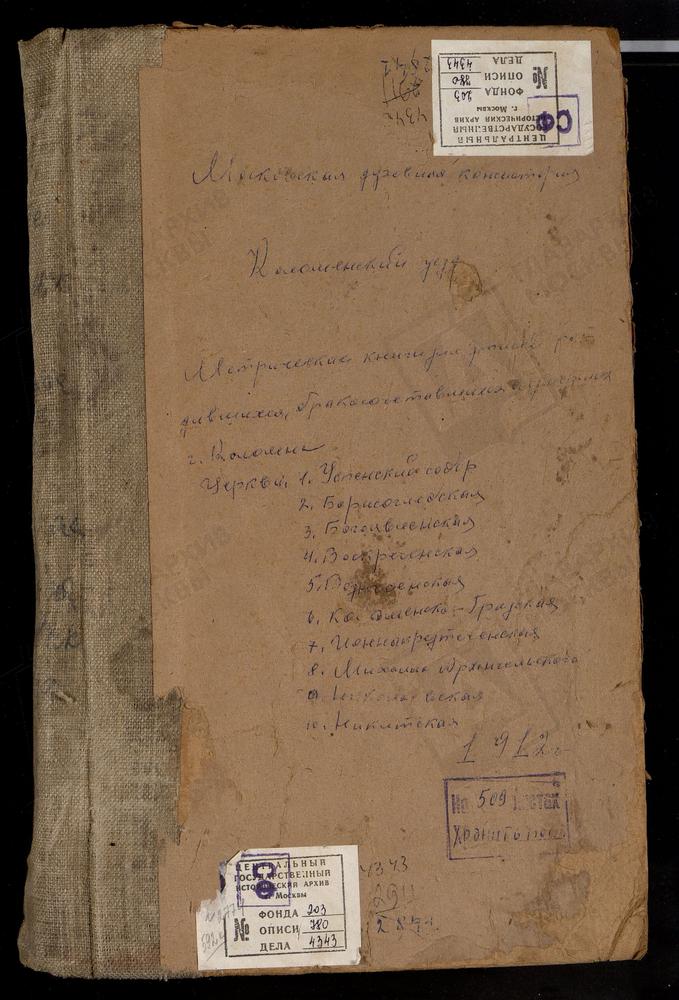 ЦЕНТРАЛЬНЫЙ
ГОСУДАРСТВЕННЫЙ
ИСТОРИЧЕСКИЙ АРХИВ
г. Москвы
СФ
№
ФОНДА 203
ОПИСИ 780
ДЕЛА 4343
Московская духовная консистория
Коломенский уезд
Метрическая книга для записи ро-
дившихся, бракосочетавшихся и умерших
г. Коломна
Церкви: 1. Успенский собор
2. Борисоглебская
3. Богоявленская
4. Воскресенская
5. Вознесенская
6. Грузская
7. Иоаннопредтеченская
8. Михаило Архангельского
9. Николаевская
10. Никитская
1912 г.
На 509 листах
Хранить
4343
2911
287
ЦЕНТРАЛЬНЫЙ
ГОСУДАРСТВЕННЫЙ
ИСТОРИЧЕСКИЙ АРХИВ
г. Москвы
СФ
№
ФОНДА 203
ОПИСИ 780
ДЕЛА 4343